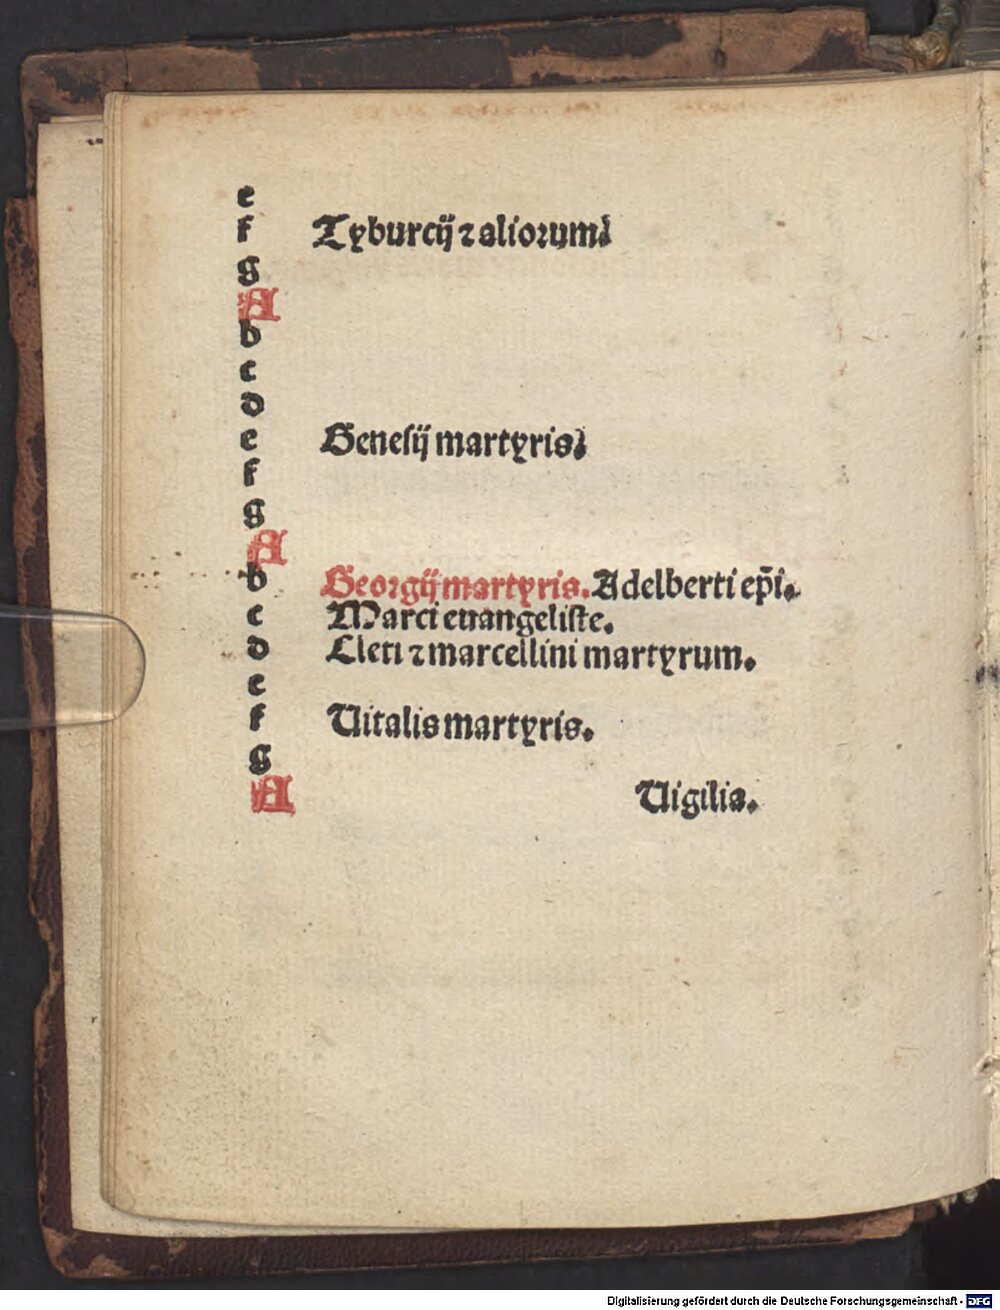 e
f Tyburcij ⁊ alioꝛum
g
A
b
c
d
e Genesij martyris
f
g
A
b Georgij martyris. Adelberti ep̄i.
c Marci euangeliste.
d Cleti ⁊ marcellini martyrum.
e
f Uitalis martyris.
g
A Uigilia.
Digitalisierung gefördert durch die Deutsche Forschungsgemeinschaft - DFG